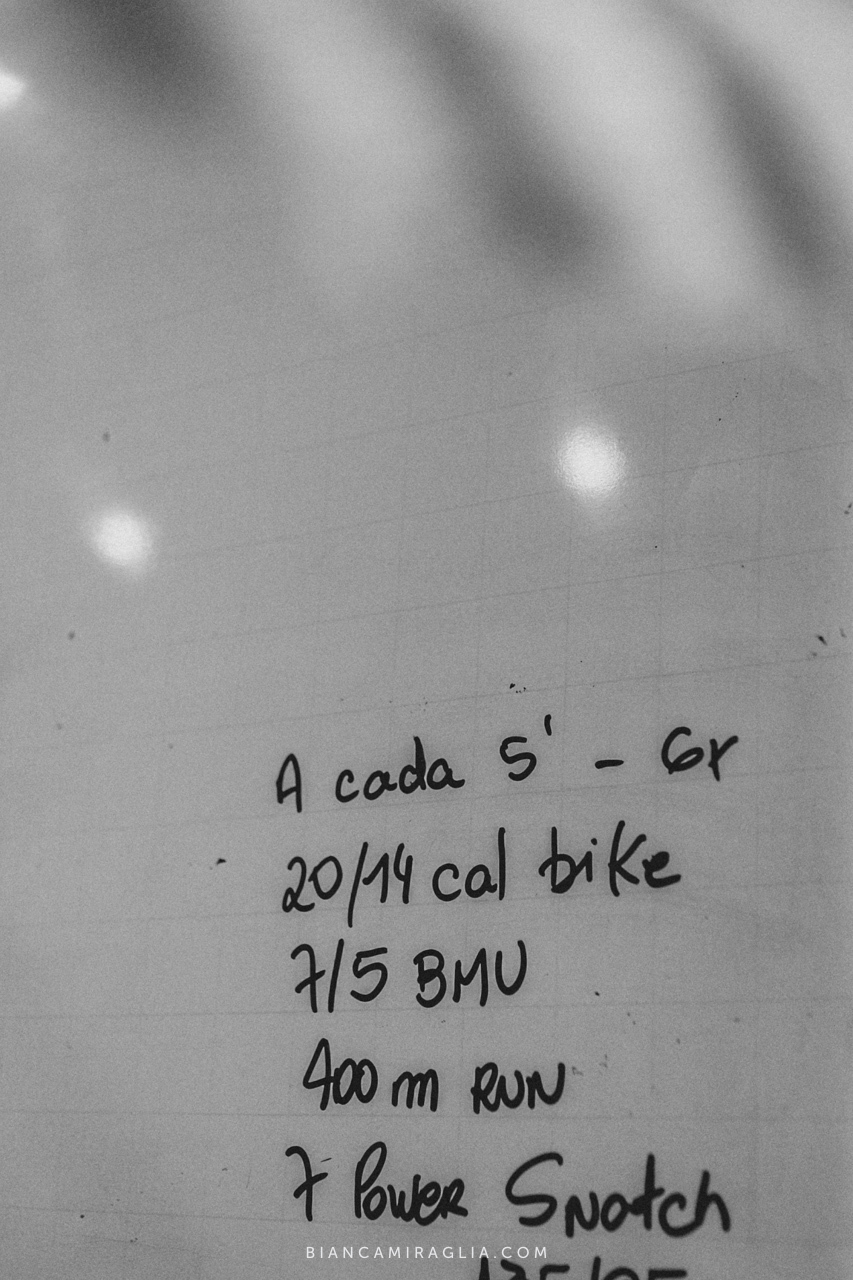 A cada 5' - 6x
20/14 cal bike
7/5 BMU
400 m RUN
7 Power Snatch
BIANCAMIRAGLIA.COM